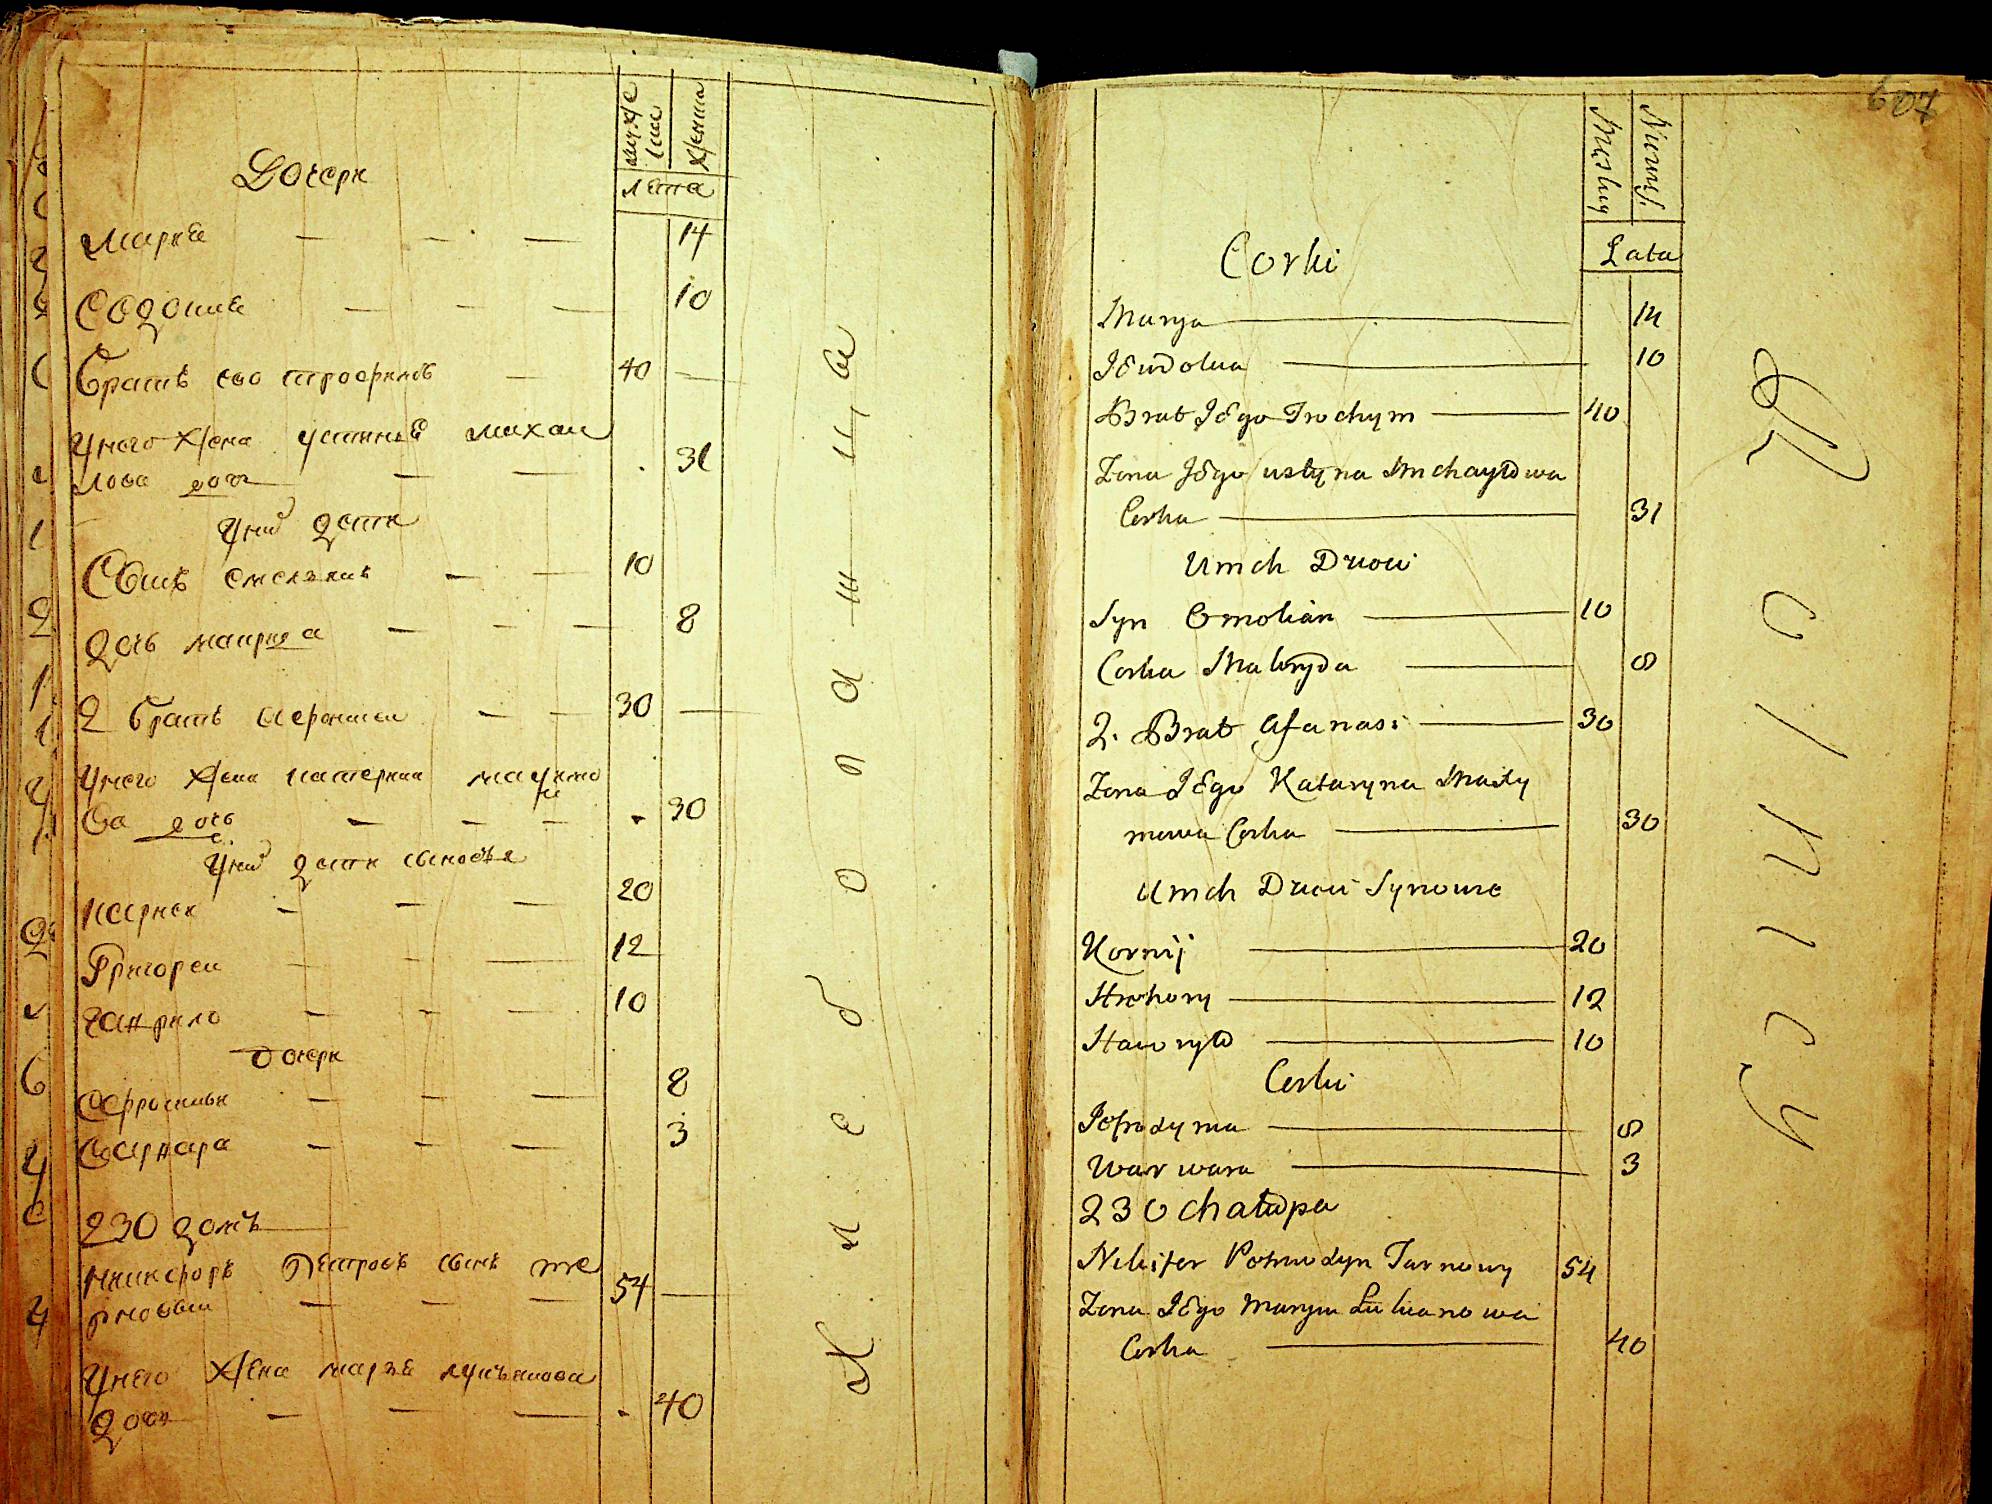 мужс
кие
женск
лета
Дочери
Марья — — — 14
Евдокия — — — 10
Братъ его трофимъ — 40 —
Унего жена устинья михаи
лова дочь — — . 31
Униѵ дети
Сынъ емельянъ — — 10
дочь мавра — — — 8
2 братъ афонасеи — — 30 —
Унего жена катерина
ва дочь — — — . 30
Униѵ дети сыновья
карнеи — — — 20
Григореи — — — 12
гаврило — — — 10
дочери
Ефросинья — — — 8
варвара — — — 3
230 домъ
никифоръ Петровъ сынъ те
рновыи — — — 54 —
Унего жена марья лукьянова
дочь — — — . 40
Хлебопашцы
607
Męskiy
Niewiej.
Lata
Corki
Marya 14
JEwdokia 10
Brat JEgo Trochym 40
Zona JEgo ustyna Michayłowa
Corka 31
Unich Dzieci
Syn Omelian 10
Corka Makryda 8
2. Brat Afanasi 30
Zona JEgo Kataryna
mowa Corka 30
Unich Dzieci Synowie
Kornij 20
Hrehory 12
Hawryło 10
Corki
Warwara 3
230 chałupa
Nikifer Tarnowy 54
Zona JEgo Marya Lukianowa
Corka 40
Rolnicy